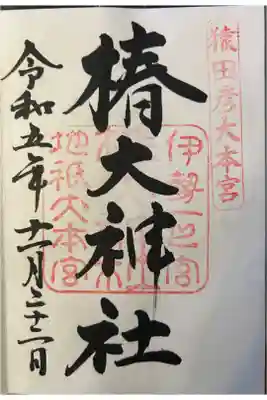 猿田彦大本宮
伊勢一之宮
地祇大本宮
椿大神社
令和五年十一月二十二日